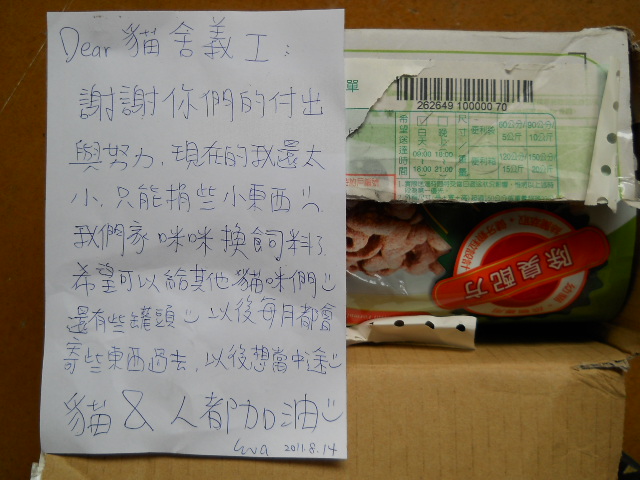 Dear 貓舍義工:
謝謝你們的付出
與努力,現在的我還太
小,只能捐些小東西
我們家咪咪換飼料了
希望可以給其他貓咪們
還有些罐頭 以後每月都會
寄些東西過去,以後想當中途
貓 & 人都加油
2011.8.14
單
262649 100000 70
希望送達時間
白天
晚上
尺寸
便利袋
60公分
90公分
09:00
18:00
18:00
21:00
120公分
150公分
除臭配方